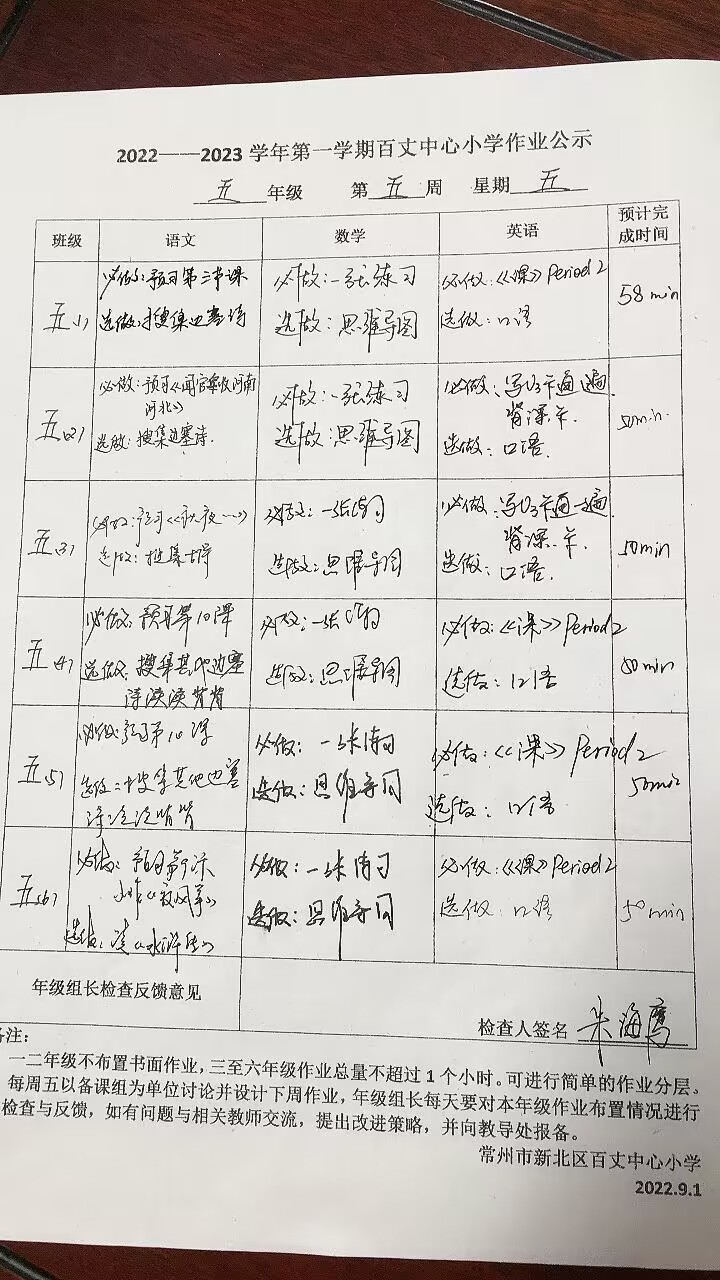 2022——2023 学年第一学期百丈中心小学作业公示
五 年级 第 五 周 星期 五
班级 语文 数学 英语 预计完成时间
五(1)
必做:预习第三节课
选做:搜集边塞诗
必做:一张练习
选做:思维导图
必做:《课》Period 2
选做:口语
58 min
五(2)
必做:预习《闻官军收河南
河北》
选做:搜集边塞诗.
必做:一张练习
选做:思维导图
必做:写U3卡通一遍
背课
选做:口语.
50min
五(3)
必做:预习
选做:搜集
必做:一张练习
选做:思维导图
必做:写U3卡通一遍
背课
选做:口语.
50min
五(4)
必做:预习第10课
选做:搜集其他边塞
诗读读背背
必做:一张练习
选做:思维导图
必做:《课》Period 2
选做:口语
50min
五(5)
必做:预习第10课
选做:搜集其他边塞
诗读读背背
必做:一张练习
选做:思维导图
必做:《课》Period 2
选做:口语
50min
五(6)
必做:预习
选做:读《水浒传》
必做:一张练习
选做:思维导图
必做:《课》Period 2
选做:口语
50min
年级组长检查反馈意见
检查人签名 朱海鹰
备注:
一二年级不布置书面作业,三至六年级作业总量不超过 1 个小时。可进行简单的作业分层。
每周五以备课组为单位讨论并设计下周作业,年级组长每天要对本年级作业布置情况进行
检查与反馈,如有问题与相关教师交流,提出改进策略,并向教导处报备。
常州市新北区百丈中心小学
2022.9.1